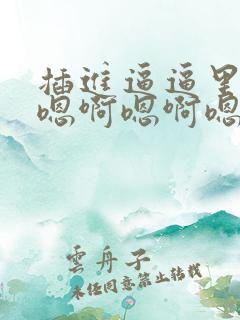 插進逼逼里
嗯啊嗯啊嗯
雲舟子
未经同意禁止转载